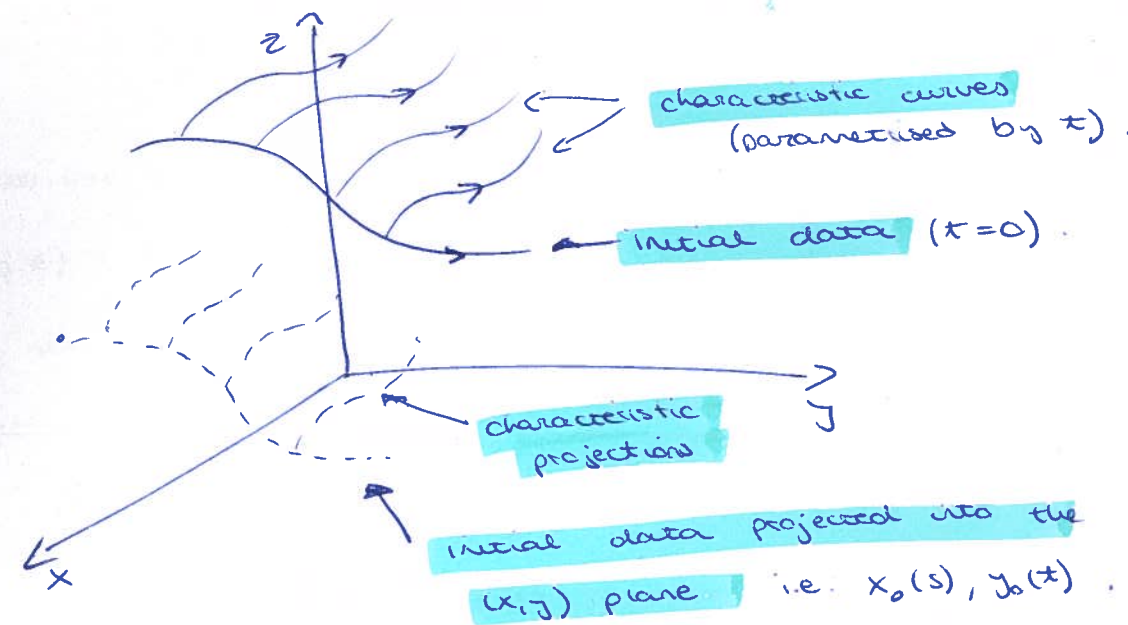 z
characteristic curves
(parametised by t).
initial data (t=0).
y
characteristic
projections
initial data projected into the
x
(x,y) plane i.e. x₀(s), y₀(t).